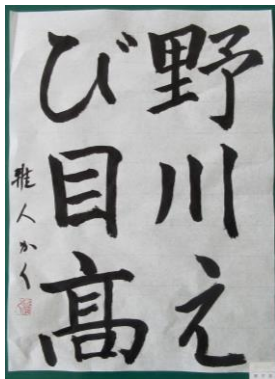 野川え
び目高
雅人かく